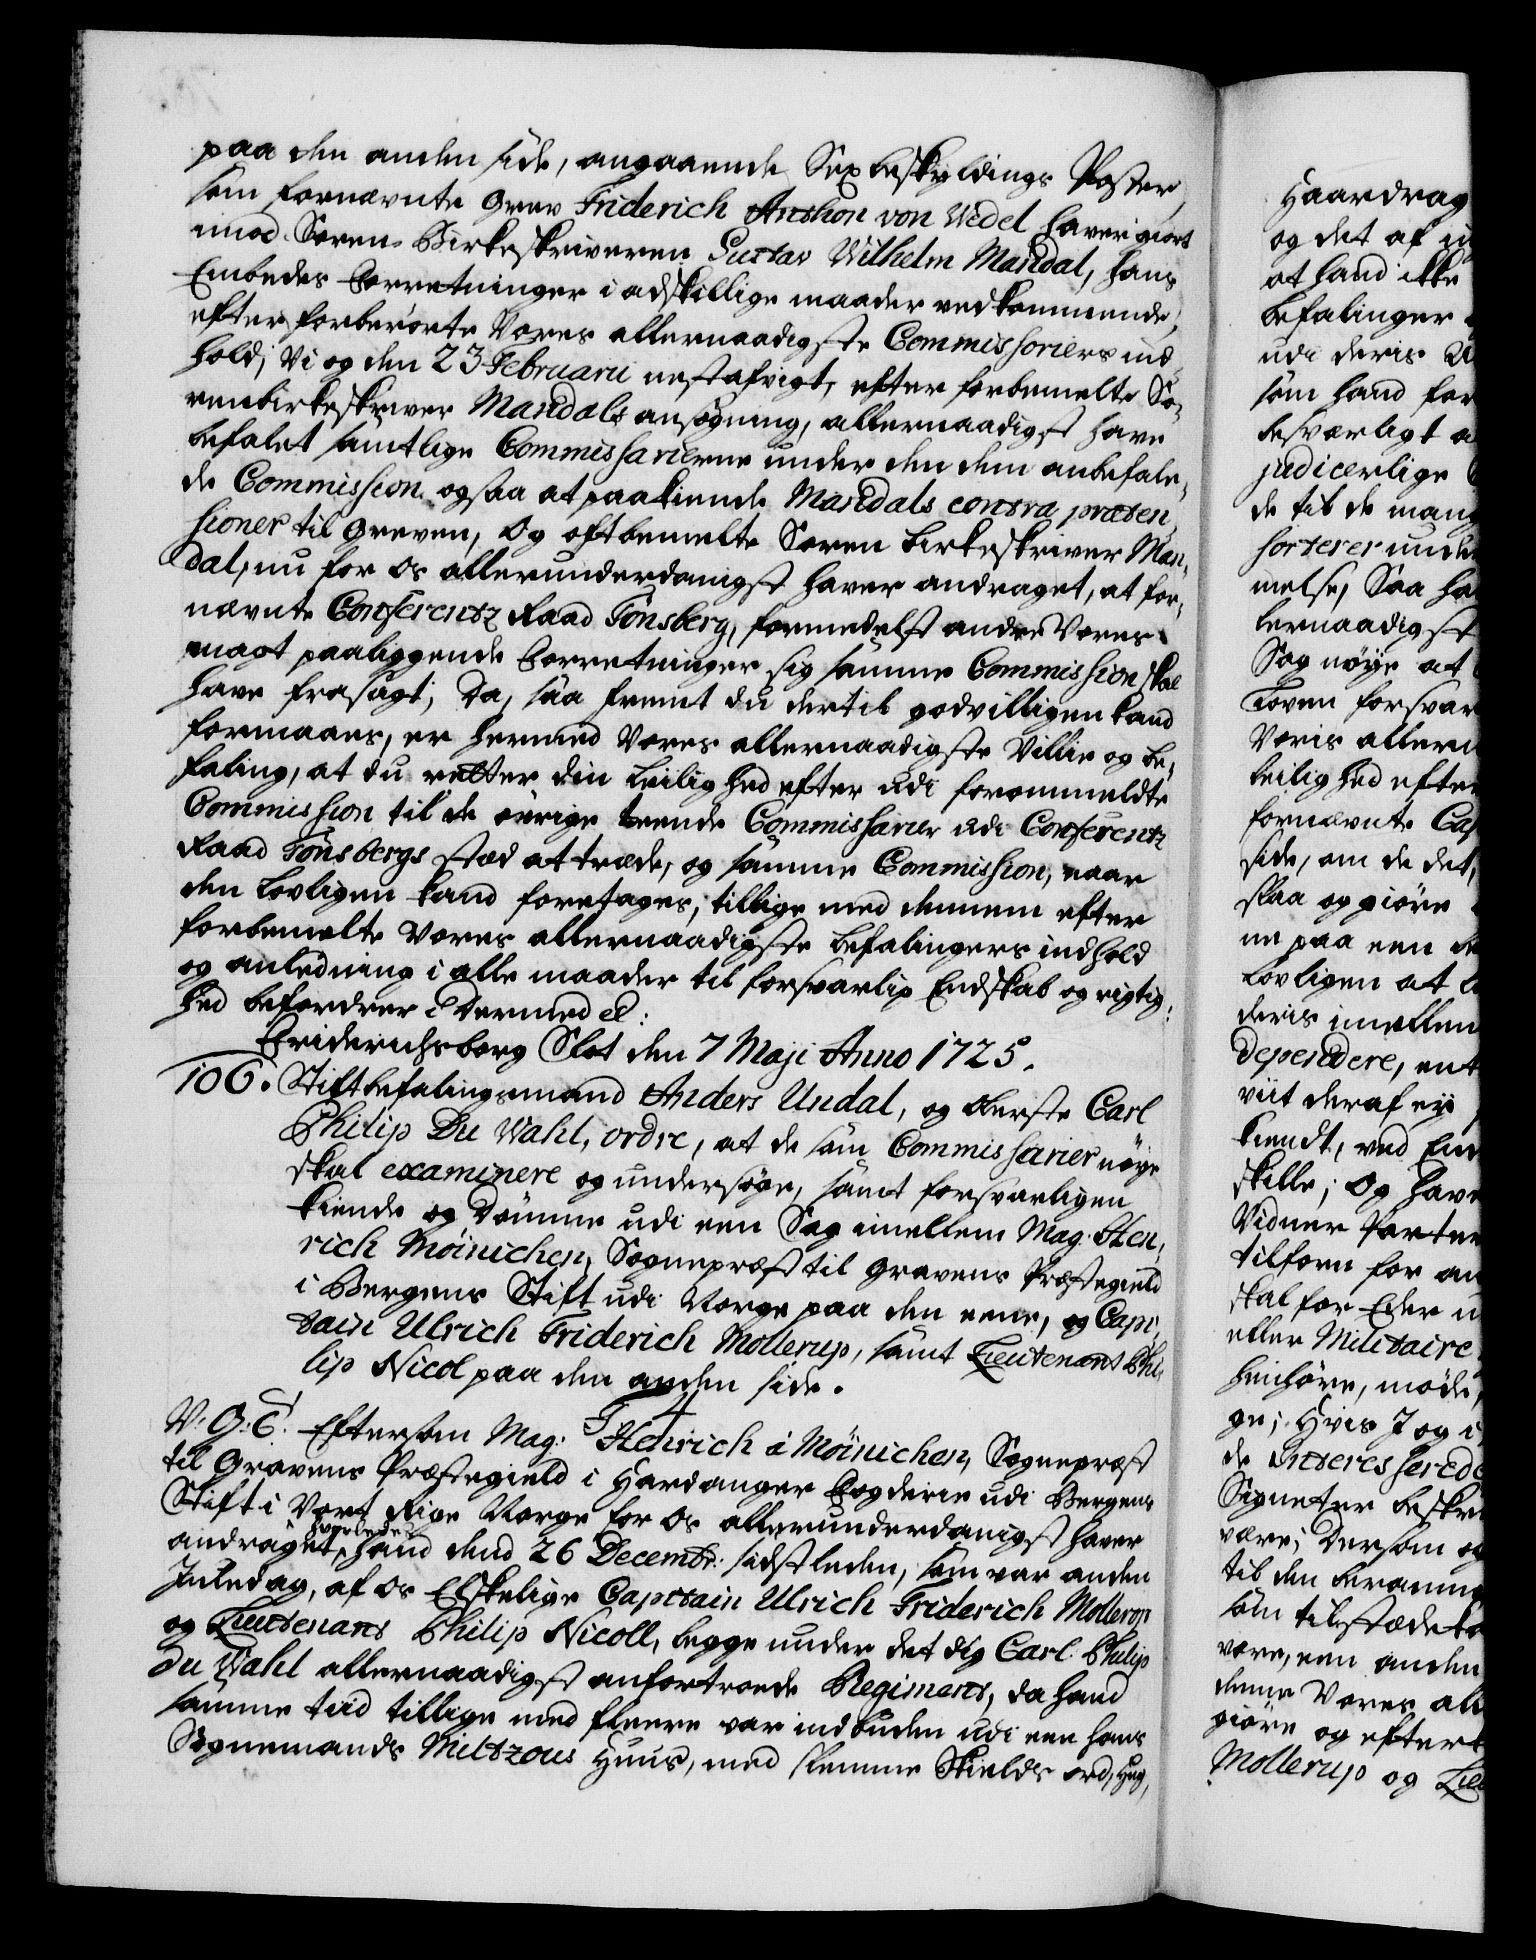 paa den anden side, angaaende Sex beskyldings Poster,
som fornævnte Grev Friderich Anthon von Wedel haver giort
imod Soren Birkeskriveren Gustav Wilhelm Mandal, hans
Embedes Forretninger i adskillige maader vedkommende,
efter forberørte Vores allernaadigste Commissoriers ind¬
hold; Vi og den 23 Februarii nestafvigt, efter forbemelte So¬
renbirkeskriver Mandals ansøgning, allernaadigst have
befalet samtlige Commissarierne under den dem anbefale¬
de Commission ogsaa at paakiende Mandals contra præten¬
sioner til Greven, Og oftbemelte Soren birkeskriver Man¬
dal, nu for Os allerunderdanigst haver andraget, at for¬
nævnte Conferentz Raad Tönsberg, formedelst andre Vores
magt paaliggende Forretninger sig samme Commission skal
have frasagt; Da, saa fremt du dertil godvilligen kand
formaaes, er hermed Vores allernaadigste Villie og be¬
faling, at du retter din Leilighed efter udi forommeldte
Commission til de øvrige trende Commissarier udi Conferentz
Raad Tönsbergs stæd at træde, og samme Commission, naar
den Lovligen kand foretages, tillige med dennem efter
forbemelte Vores allernaadigste befalingers indhold
og anledning i alle maader til forsvarlig Endskab og rigtig¬
hed befordrer. Dermed etc:
Friderichsborg Slot den 7 Maji Anno 1725.
106. Stiftbefalingsmand Anders Undal, og Oberste Carl
Philip Du Wahl, ordre, at de som Commissarier nøye
skal examinere og undersøge, samt forsvarligen
kiende og Dømme udi een Sag imellem Mag. Hen¬
rich Möinichen, Sognepræst til Gravens Præstegield
i Bergens Stift udi Norge paa den eene, og Capi¬
tain Ulrich Friderich Mollerup, samt Lieutenant Phi¬
lip Nicol paa den anden side.
V: G: T. Eftersom Mag: Henrich á Möinichen, Sognepræst
til Gravens Præstegield i Hardanger Fogderie udi Bergens
Stift i Vort Rige Norge for Os allerunderdanigst haver
andraget, hvorledes hand dend 26 Decembr: sidstleden, som var anden
Juledag, af Os Elskelige Capitain Ulrich Friderich Mollerop
og Lieutenant Philip Nicoll, begge under det dig Carl Philip
du Wahl allernaadigst anfortroede Regiment, da hand
samme tiid tillige med fleere var indbuden udi een hans
Sognemands Miltzous Huus, med slemme Skields ord, Hug,
Haardrag
og det af
at hand ikke
befalinger
udi deris
som hand for
besværligt
judicerlige
de til de mang
sorterer under
melse, Saa ha
lernaadigst
Sag nøye at
Loven forsvar
Voris allern
leilighed efter
fornævnte Cap
side, om de det
slaa og giøre
ne paa een
Lovligen at
deris imellem
dependere, ent
viit deraf ey
kiendt, ved End
skille; Og have
Vidner Parter
tilforn for an
skal for Eder
eller Militaire
henhøre, møde,
ge; Hvis I og i
de Interessered
Signeter beskre
være; Dersom og
til den beramme
som tilstæde ko
være, een anden
denne Vores all
giøre og efter
Mollerup og Lieu